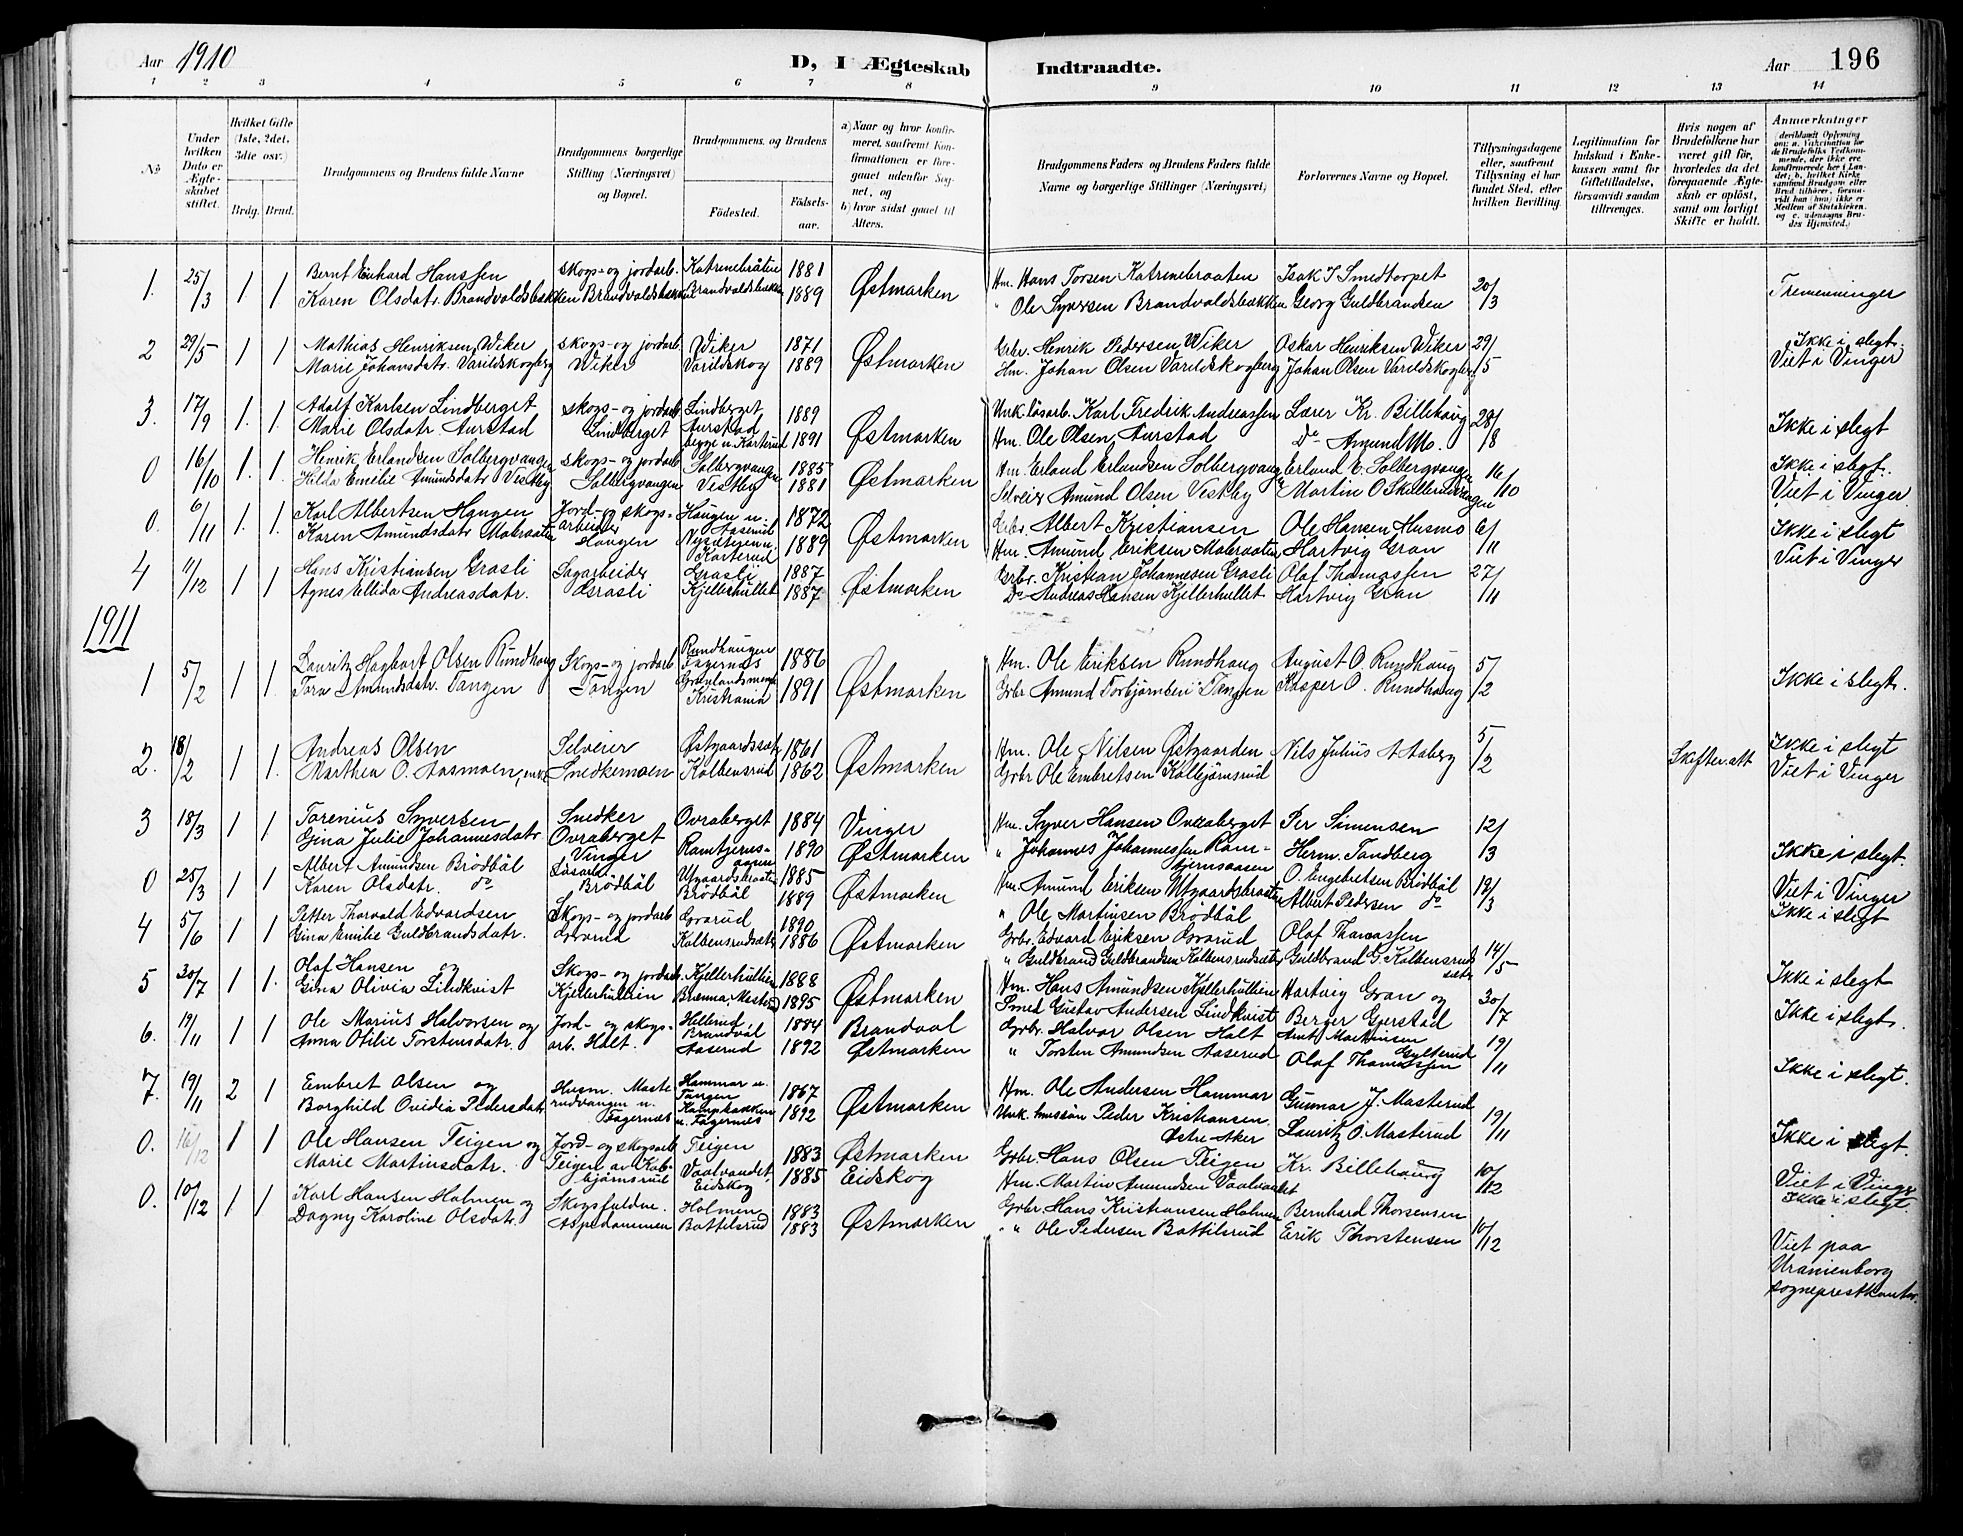 Aar 1910
D, I Ægteskab Indtraadte.
Aar 196
1 2 3 4 5 6 7 8 9 10 11 12 13 14
No.
Under hvilken Dato er Ægteskabet stiftet.
Hvilket Gifte (1ste, 2det, 3die osv.)
Brdg. Brud.
Brudgommens og Brudens fulde Navne
Brudgommens borgerlige Stilling (Næringsvei) og Bopæl.
Brudgommens og Brudens
Födested. Födselsaar.
a) Naar og hvor konfirmeret, saafremt Konfirmationen er foregaaet udenfor Sognet, og
b) hvor sidst gaaet til Alters.
Brudgommens Faders og Brudens Faders fulde Navne og borgerlige Stillinger (Næringsvei)
Forlovernes Navne og Bopæl.
Tillysningsdagene eller, saafremt Tillysning ei har fundet Sted, efter hvilken Bevilling.
Legitimation for Indskud i Enkekassen samt for Giftetilladelse, forsaavidt saadan tiltrænges.
Hvis nogen af Brudefolkene har været gift för, hvorledes da det foregaaende Ægteskab er oplöst, samt om lovligt Skifte er holdt.
Anmærkninger
deriblandt Oplysning om: a. Vakcination for de Brudefolks Vedkommende, der ikke ere konfirmerede her i Landet; b. hvilket Kirkesamfund Brudgom eller Brud tilhører, forsaavidt han (hun) ikke er Medlem af Statskirken, og c. udensogns Brudes Hjemsted.)
1. 25/3 1 1. Bernt Enhard Hanssen skogs- og jordarb. Katrinebråten 1881 Østmarken Hm. Hans Torsen Katrinebraaten Isak I Smedtorpet 20/3 Tremenninger
Karen Olsdatr. Brandvoldsbækken Brandvoldsbækken Brandvoldsbækken 1889 " Ole Syversen Brandvoldsbækken Georg Guldbrandsen
2 29/5 1 1. Mathias Henriksen Wiker skogs- og jordarb. Wiker 1871 Østmarken Grbr. Henrik Pedersen Wiker Oskar Henriksen Wiker 29/5 Ikke i slegt.
Marie Johansdatr. Varildskogberg Wiker Varildskog 1889 Hm. Johan Olsen Varildskogberg Johan Olsen Varildskogberg Viet i Vinger
3. 17/9 1. 1. Adolf Karlsen Lindberget skogs- og jordarb. Lindberget 1889 Østmarken Unk. løsarb. Karl Fredrik Andreassen Lærer Kr. Billehaug 28/8 Ikke i slegt
Marie Olsdatr. Aurstad Lindberget Aurstad begge u. Karterud 1891 Hm. Ole Olsen Aurstad Do Amund Mo.
0 16/10 1. 1. Henrik Erlandsen Solbergvangen skogs- og jordarb Solbergvangen 1885 Østmarken Hm. Erland Erlandsen Solbergvangen Erland E. Solbergvangen 16/10 Ikke i slegt.
Hilda Emelie Amundsdatr Vestby Solbergvangen Vestby 1881 Selveier Amund Olsen Vestby Martin O Viet i Vinger
0. 6/11 1. 1. Karl Albertsen Haugen Jord- og skogs- Haugen u. Aaserud 1872 Østmarken Grbr. Albert Kristiansen Ole Hansen Husmo 6/11 Ikke i slegt
Karen Amundsdatr Mobraaten arbeider Haugen Karterud 1889 Hm. Amund Eriksen Mobraaten Hartvig Gran Viet i Vinger
4 11/12 1 1 Hans Kristiansen Grasli Sagarbeider Grasli 1887 Østmarken Grbr. Kristian Johannesen Grasli Olaf Thomassen 27/11
Agnes Ellida Andreasdatr. Grasli Kjellerhullet 1887 Do Andreas Hansen Kjellerhullet Hartvig Gran
1911
1 5/2 1 1. Lauritz Hagbart Olsen Rundhaug Skogs- og jordarb Rundhaugen Fagernes 1886 Østmarken Hm. Ole Eriksen Rundhaug August O. Rundhaug 5/2 Ikke i slegt.
Tora Amundsdatr. Tangen Tangen Kristiania 1891 Grbr Amund Torbjørnsen Tangen Kasper O. Rundhaug
2. 18/2 1 1. Andreas Olsen Selveier Østgaardssæt. 1861 Østmarken Hm. Ole Nilsen Østgaarden Nils Julius A Aaberg 5/2 Skifteratt Ikke i slegt
Marthea O. Aasmoen, enke Snedkemoen Kolbensrud 1862 Grbr Ole Embretsen Kolbjørnsrud Viet i Vinger
3 18/3 1 1 Torenius Syversen Snedker Ovraberget 1884 Vinger Hm. Syver Hansen Ovraberget Per Simensen 12/3 Ikke i slegt.
Gina Julie Johannesdatr. Ovraberget Vinger Ramtjerns- aasen 1890 Østmarken " Johannes Johannessen Ram- tjernsaasen Herm. Tandberg Viet i Vinger
0 25/3 1 1 Albert Amundsen Brödböl Løsarb. Utgaardsbraaten 1885 Østmarken Hm. Amund Eriksen Utgaardsbraaten O. Engebretsen Brödböl 19/3 Ikke i slegt
Karen Olsdatr. do Brödböl Brödböl 1889 " Ole Martinsen Brödböl Albert Pedersen do
4 5/6 1 1 Petter Thorvald Edvardsen Skogs- og jordarb Gvarud 1890 Østmarken Grbr. Edvard Eriksen Gvarud Olaf Thomassen 14/5
Gina Emilie Guldbrandsdatr. Gvarud Kolbensrudsæt. 1886 " Guldbrand Guldbrandsen Kolbensrudsæter Guldbrand G. Kolbensrudsæter Ikke i slegt
5 30/7 1 1. Olaf Hansen og Skogs- og jordarb. Kjellerhullien 1888 Østmarken Hm. Hans Amundsen Kjellerhullien Hartvig Gran og 30/7 Ikke i slegt.
Gina Olivia Lindkvist Kjellerhullien Brænna, Masterud 1895 Smed Gustav Andersen Lindkvist Berger Gjerstad
6. 19/11 1 1 Ole Marius Halvorsen og Jord- og skogs- Hellerud Brandvål 1884 Brandval Grbr. Halvor Olsen Holt Arnt Martinsen Gylterud 19/11 Ikke i slegt.
Anna Otilie Torstensdatr. arb. Holt. Aaserud 1892 Østmarken " Torsten Amundsen Aaserud Olaf Thomassen
7. 19/11 2 1 Embret Olsen og Husm. Maste- Hammar u. Tangen 1867 Østmarken Hm. Ole Andersen Hammar Gunnar J. Masterud 19/11
Borghild Ovidia Pedersdatr rudvangen u. Fagernes Kampebakken u. Fagernes 1892 Unk. Peder Kristiansen. Østre Aker Lauritz O. Masterud Ikke i slegt.
0. 16/12 1 1 Ole Hansen Teigen og Jord- og skogsarb Teigen 1883 Østmarken Grbr. Hans Olsen Teigen Kr. Billehaug 10/12 Viet i Vinger
Marie Martinsdatr. Teigen av Kol- bjørnsrud Vaalvandet, Eidskog 1885 Eidskog Hm. Martin Amundsen Vaalvandet Ikke i slegt.
0. 10/12 1 1 Karl Hansen Holmen og Skogsfuldm. Holmen 1883 Østmarken Grbr Hans Kristiansen Holmen Bernhard Thorsensen 10/12
Dagny Karoline Olsdatr. Aspedammen Battilsrud 1883 " " Ole Pedersen Battilsrud Erik Thorstensen
Viet paa
Uranienborg
sogneprestkontor.